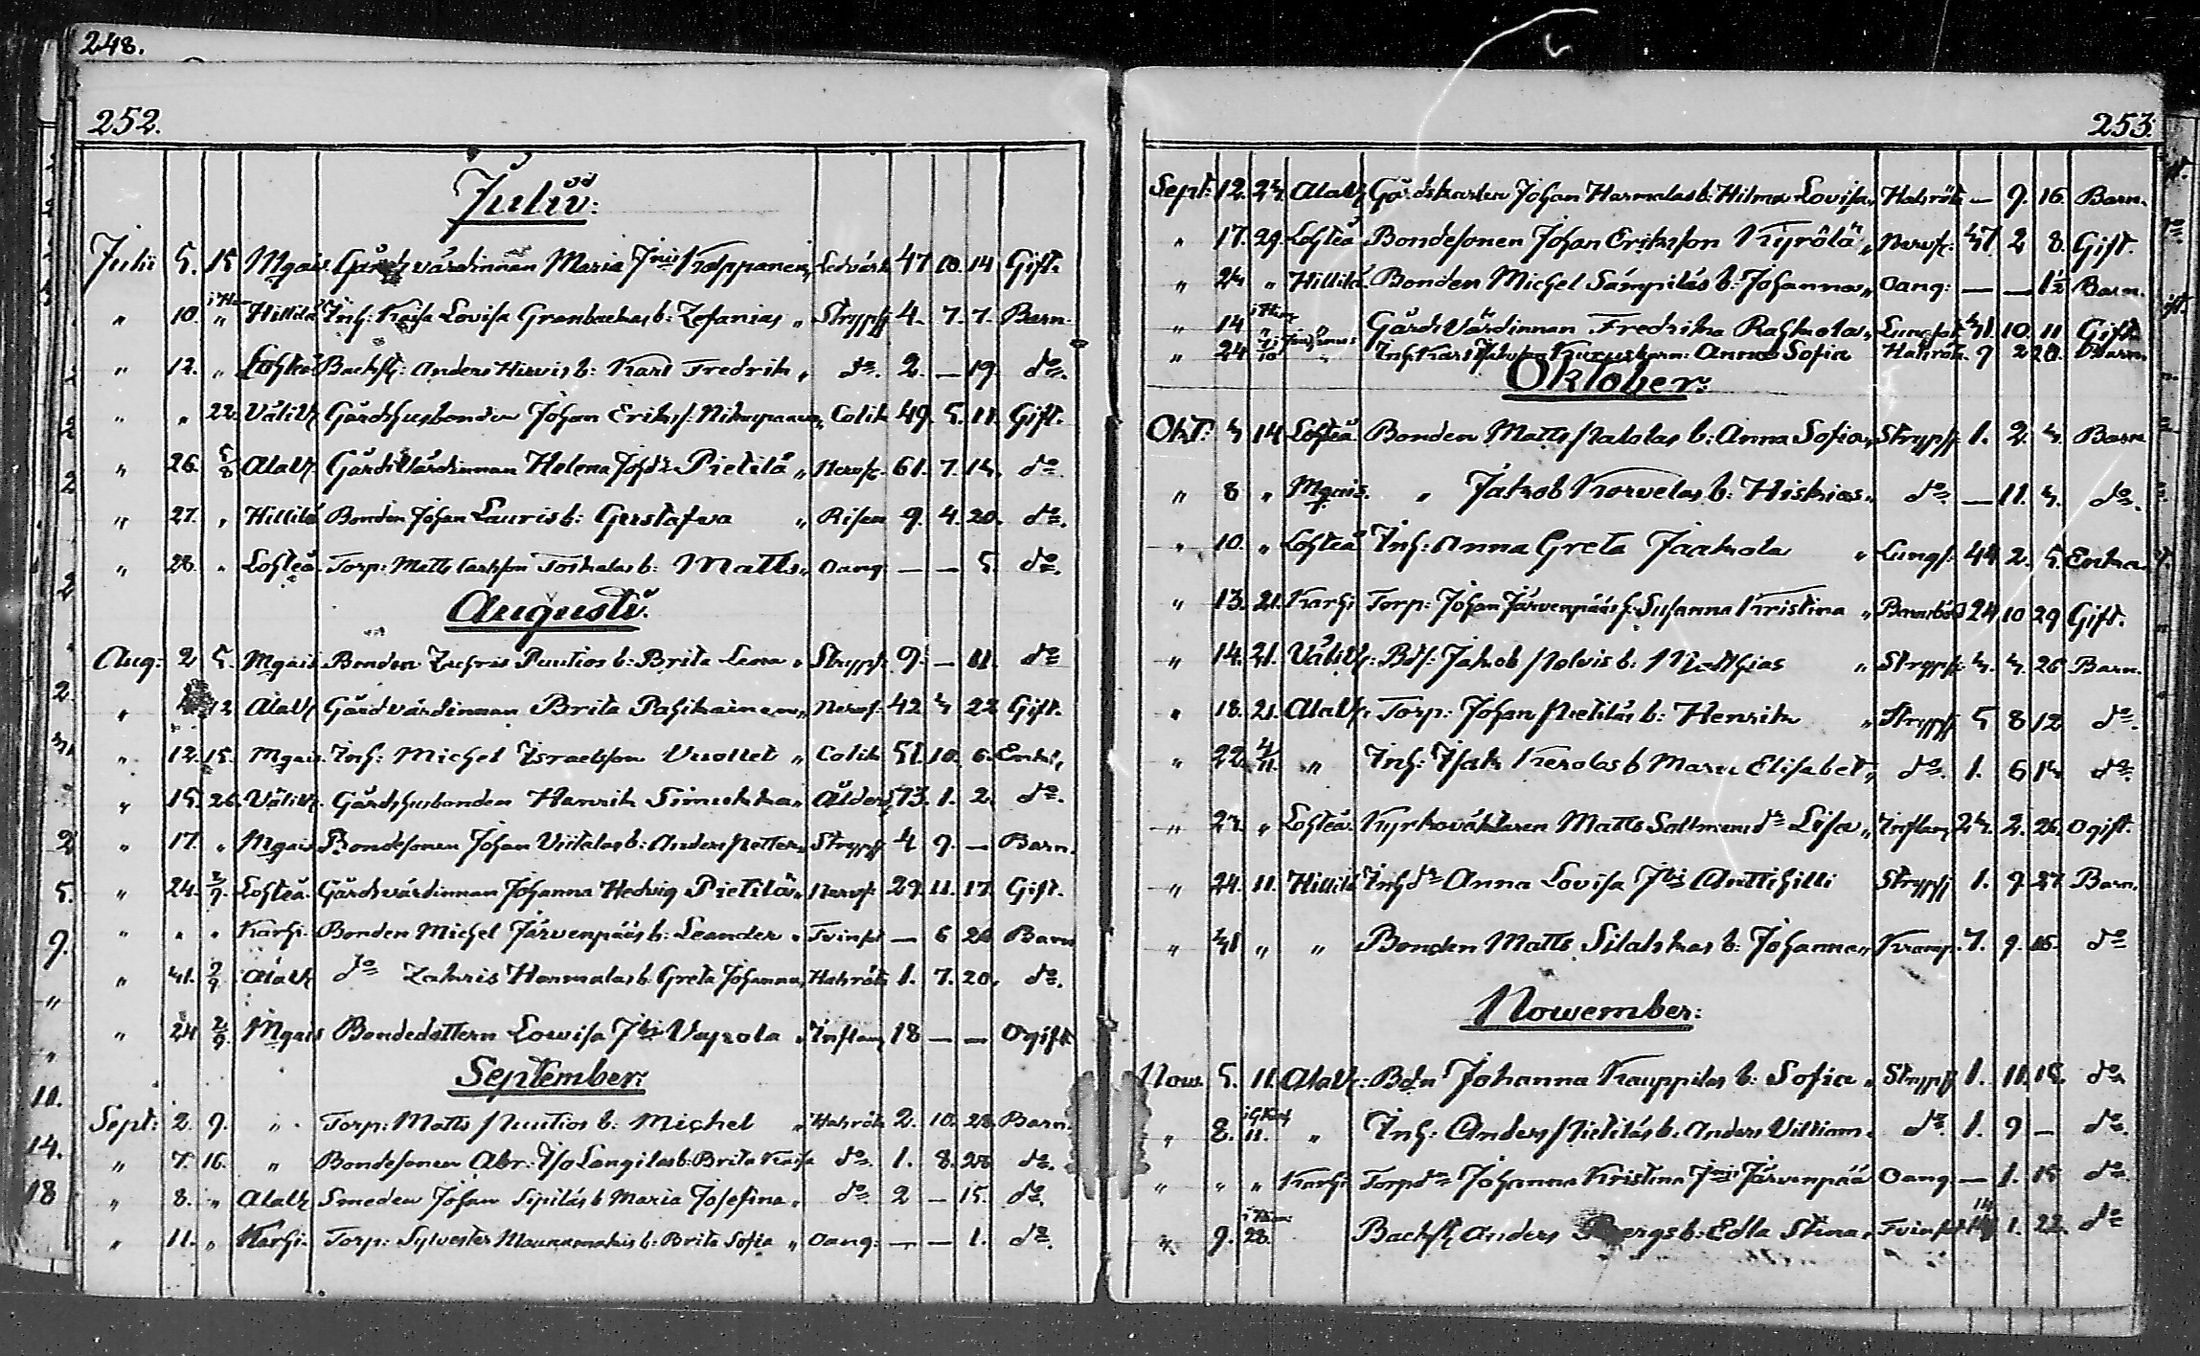 248.
252.
Julii:
Julii 5. 15 Mgais Gårdsvärdinnan Maria Kålppanen, 47 10. 14 Gift.
" 10. " Hillilä Inh: Kajsa Lovisa Granbackas b: Zefanias " Strypsj 4. 7. 7. Barn.
" 12. " Lohteå Backst: Anders Hirvis b: Karl Fredrik, do. 2. — 19. do.
" " 22. Välivk Gårdshusbonden Johan Erikss. Colik 49. 5. 11. Gift.
" 26. 5/8 Alavk Gårdsvärdinnan Helena Pietilä " Nervf. 61. 7. 14. do.
" 27. " Hillilä Bonden Johan Lauris b: Gustafva " Risen 9. 4. 20. do.
" 28. " Lohteå Torp: Matts Toskalas b: Matts " Oang — — 5. do.
Augusti.
Aug: 2 5. Mgais Bonden Zachris Puutios b: Brita Lena " Strypsj. 9. — 11. do
" Alavk Gårdvärdinnan Brita Pahikainen, Nervf. 42 4 22 Gift.
" 12. 15. Mgais. Inh: Michel Israelsson Vuollet " Colik 51. 10. 6. Enkl,
" 15. 26. Välivk. Gårdshusbonden Henrik Simukka " Ålder 73. 1. 2. do.
" 17. " Mgais Bondesonen Johan Viitalas b: Anders Petter " Strypsj 4 9. — Barn.
" 24. 2/9. Lohteå. Gårdsvärdinnan Johanna Hedvig Pietilä " Nervf. 29. 11. 17. Gift.
" " " Karhi. Bonden Michel Järvenpääs b: Leander " Tvinst — 6 26 Barn
" 31. 2/9 Alavk do Zakris Hannulas b: Greta Johanna, Halsröta 1. 7. 20. do.
" 24 2/9. Mgais Bondedottern Lovisa Veyrola " Inflam 18 — — Ogift
September:
Sept: 2. 9. " Torp: Matts Puutios b: Michel " Halsröta 2. 10. 28. Barn.
" 7. 16. " Bondesonen Abr: Iso Langilas b: Brita Kajsa do. 1. 8. 28 do.
" 8. " Alavk Smeden Johan Sipiläs b Maria Josefina " do 2 — 15. do.
" 11. " Karhi. Torp: Sylvester b: Brita Sofia " Oang: — — 1. do.
253.
Sept: 12. 24. Alavk Gårdskarlen Johan Harmalas b: Hilma Lovisa " Halsröta — 9. 16. Barn.
" 17. 29. Lohteå Bondesonen Johan Eriksson Kyrölä " Nervf: 47. 2 8. Gift.
" 24 " Hillilä. Bonden Michel Sämpiläs b: Johannes " Oang: — — 1½ Barn.
" 14 Gårds Värdinnan Fredrika Raskola " Lungsot 41. 10. 11 Gift.
" 24 Inh: Karl barn: Anna Sofia Halsröta 9 2 20. Barn
Oktober:
Okt: 4 14 Lohteå Bonden Matts Palolas b: Anna Sofia " Strypsj. 1. 2. 4. Barn
" 8 " Mgais. " Jakob Korvelas b: Hiskias " do — 11. 4. do.
" 10. " Lohteå Inh: Anna Greta Jaakola " Lungs. 44 2. 5. Enka.
" 13. 21. Karhi Torp: Johan Järvenpääs h: Susanna Kristina " Barnsbörd 24 10 29 Gift.
" 14. 21. Välivk: Bds: Jakob Polvis b: Matthias " Strypsj: 4. 4. 26 Barn.
" 18. 21. Alavk. Torp: Johan Pietiläs b: Henrik " Strypsj 5 8 12 do.
" 22. 4/11. " Inh: Isak Kerolas b Maria Elisabet " do. 1. 6 14 do.
" 23. " Lohteå. Kyrkoväktaren Matts Saltmans dr Lisa " Inflam 24. 2. 26. Ogift.
" 24. 11. Hillilä Inhdr Anna Lovisa Anttihilli Strypsj 1. 9. 27 Barn.
" 31 " " Bonden Matts Silakkas b: Johanna " Kramp. 7. 9. 15. do
Nowember:
Now. 5. 11. Alavk: Bdn Johanna Kauppilas b: Sofia " Strypsj 1. 11. 15. do.
" 8. 11. " Inh: Anders Pietiläs b: Anders William. do. 1. 9 — do.
" " " Karhi Torpdr Johanna Kristina Järvenpää Oang — 1. 15 do.
" 9. 28. Backst Anders Bergs b: Edla Stina " Tvinst 14 1. 22. do